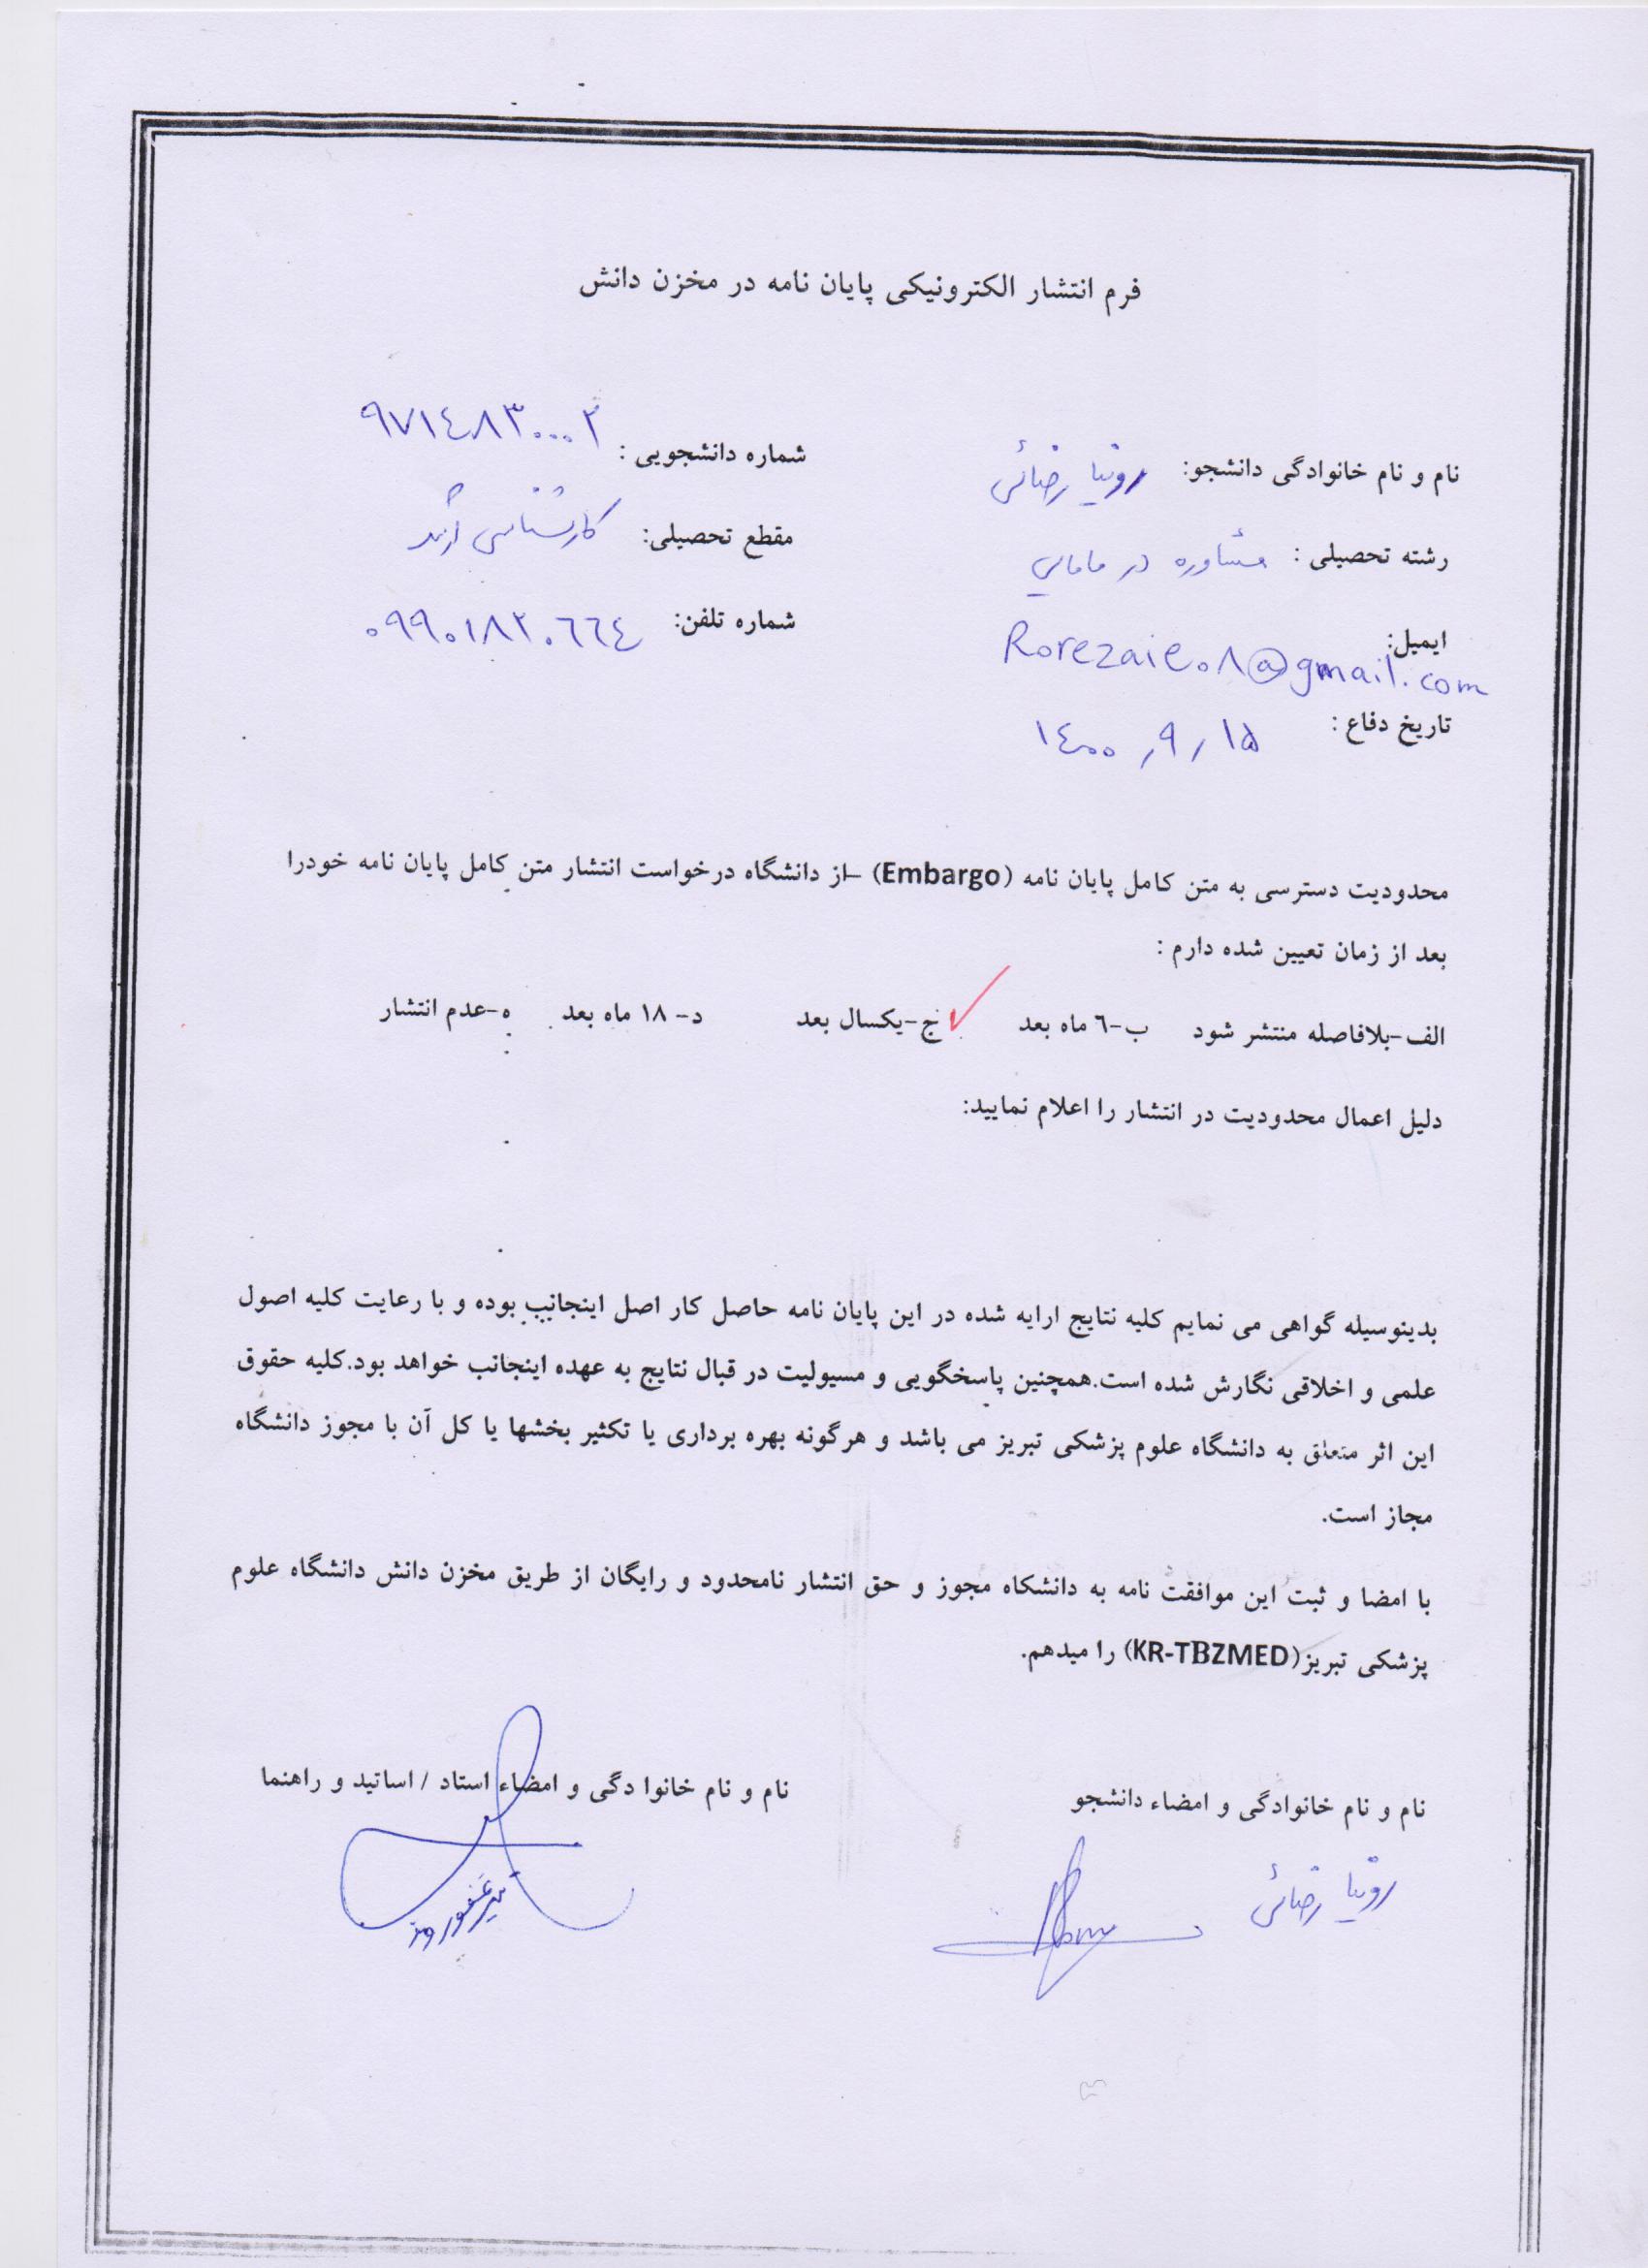 فرم انتشار الکترونیکی پایان نامه در مخزن دانش
نام و نام خانوادگی دانشجو: رونیا رضائی شماره دانشجویی : ۹۷۱٤۸۳۰۰۰۲
رشته تحصیلی : مشاوره در مامایی مقطع تحصیلی: کارشناسی ارشد
ایمیل: Rorezaie۰۸@gmail.com شماره تلفن: ۰۹۹۰۱۸۲۰٦٦٤
تاریخ دفاع : ۱٤۰۰٫۹٫۱۵
محدودیت دسترسی به متن کامل پایان نامه (Embargo) –از دانشگاه درخواست انتشار متن کامل پایان نامه خودرا
بعد از زمان تعیین شده دارم :
الف-بلافاصله منتشر شود ب-٦ ماه بعد ✓ ج-یکسال بعد د- ۱۸ ماه بعد ه-عدم انتشار
دلیل اعمال محدودیت در انتشار را اعلام نمایید:
بدینوسیله گواهی می نمایم کلیه نتایج ارایه شده در این پایان نامه حاصل کار اصل اینجانب بوده و با رعایت کلیه اصول
علمی و اخلاقی نگارش شده است.همچنین پاسخگویی و مسیولیت در قبال نتایج به عهده اینجانب خواهد بود.کلیه حقوق
این اثر متعلق به دانشگاه علوم پزشکی تبریز می باشد و هرگونه بهره برداری یا تکثیر بخشها یا کل آن با مجوز دانشگاه
مجاز است.
با امضا و ثبت این موافقت نامه به دانشکاه مجوز و حق انتشار نامحدود و رایگان از طریق مخزن دانش دانشگاه علوم
پزشکی تبریز(KR-TBZMED) را میدهم.
نام و نام خانوادگی و امضاء دانشجو نام و نام خانوا دگی و امضاء استاد / اساتید و راهنما
رونیا رضائی